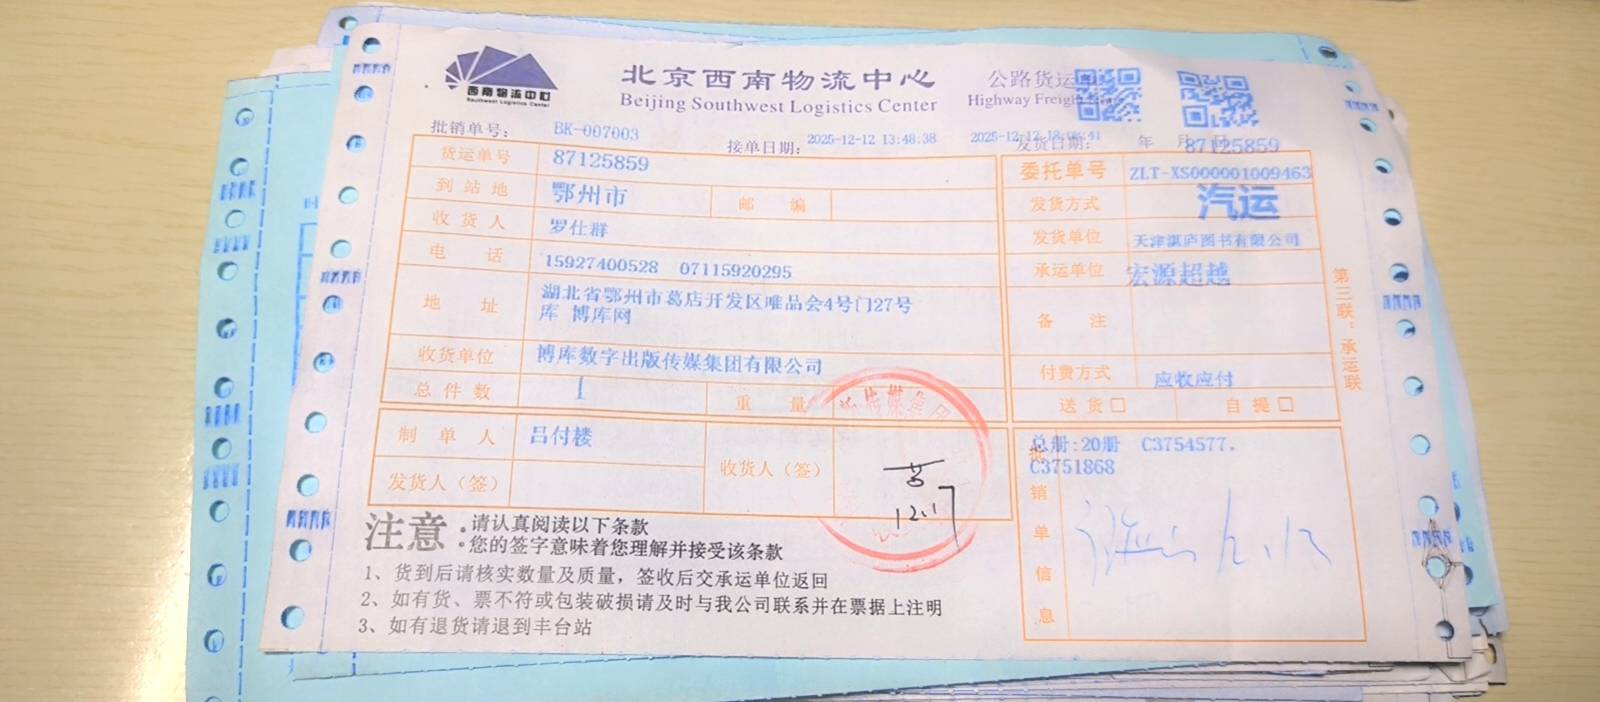 西南物流中心
Southwest Logistics Center
北京西南物流中心
Beijing Southwest Logistics Center
公路货运
Highway Freight
批销单号: BK-007003
接单日期: 2025-12-12 13:48:38
发货日期: 2025-12-12 18:08:41 年 月
87125859
货运单号 87125859
到站地 鄂州市 邮编
收货人 罗仕群
电话 15927400528 07115920295
地址 湖北省鄂州市葛店开发区唯品会4号门27号
库 博库网
收货单位 博库数字出版传媒集团有限公司
总件数 1 重量
委托单号 ZLT-XS000001009463
发货方式 汽运
发货单位 天津湛庐图书有限公司
承运单位 宏源超越
备注
付费方式 应收应付
送货□ 自提□
制单人 吕付楼
发货人(签)
收货人(签)
传媒集团
12.17
总册:20册 C3754577.
C3751868
销单信息
第三联:承运联
注意:请认真阅读以下条款
您的签字意味着您理解并接受该条款
1、货到后请核实数量及质量,签收后交承运单位返回
2、如有货、票不符或包装破损请及时与我公司联系并在票据上注明
3、如有退货请退到丰台站